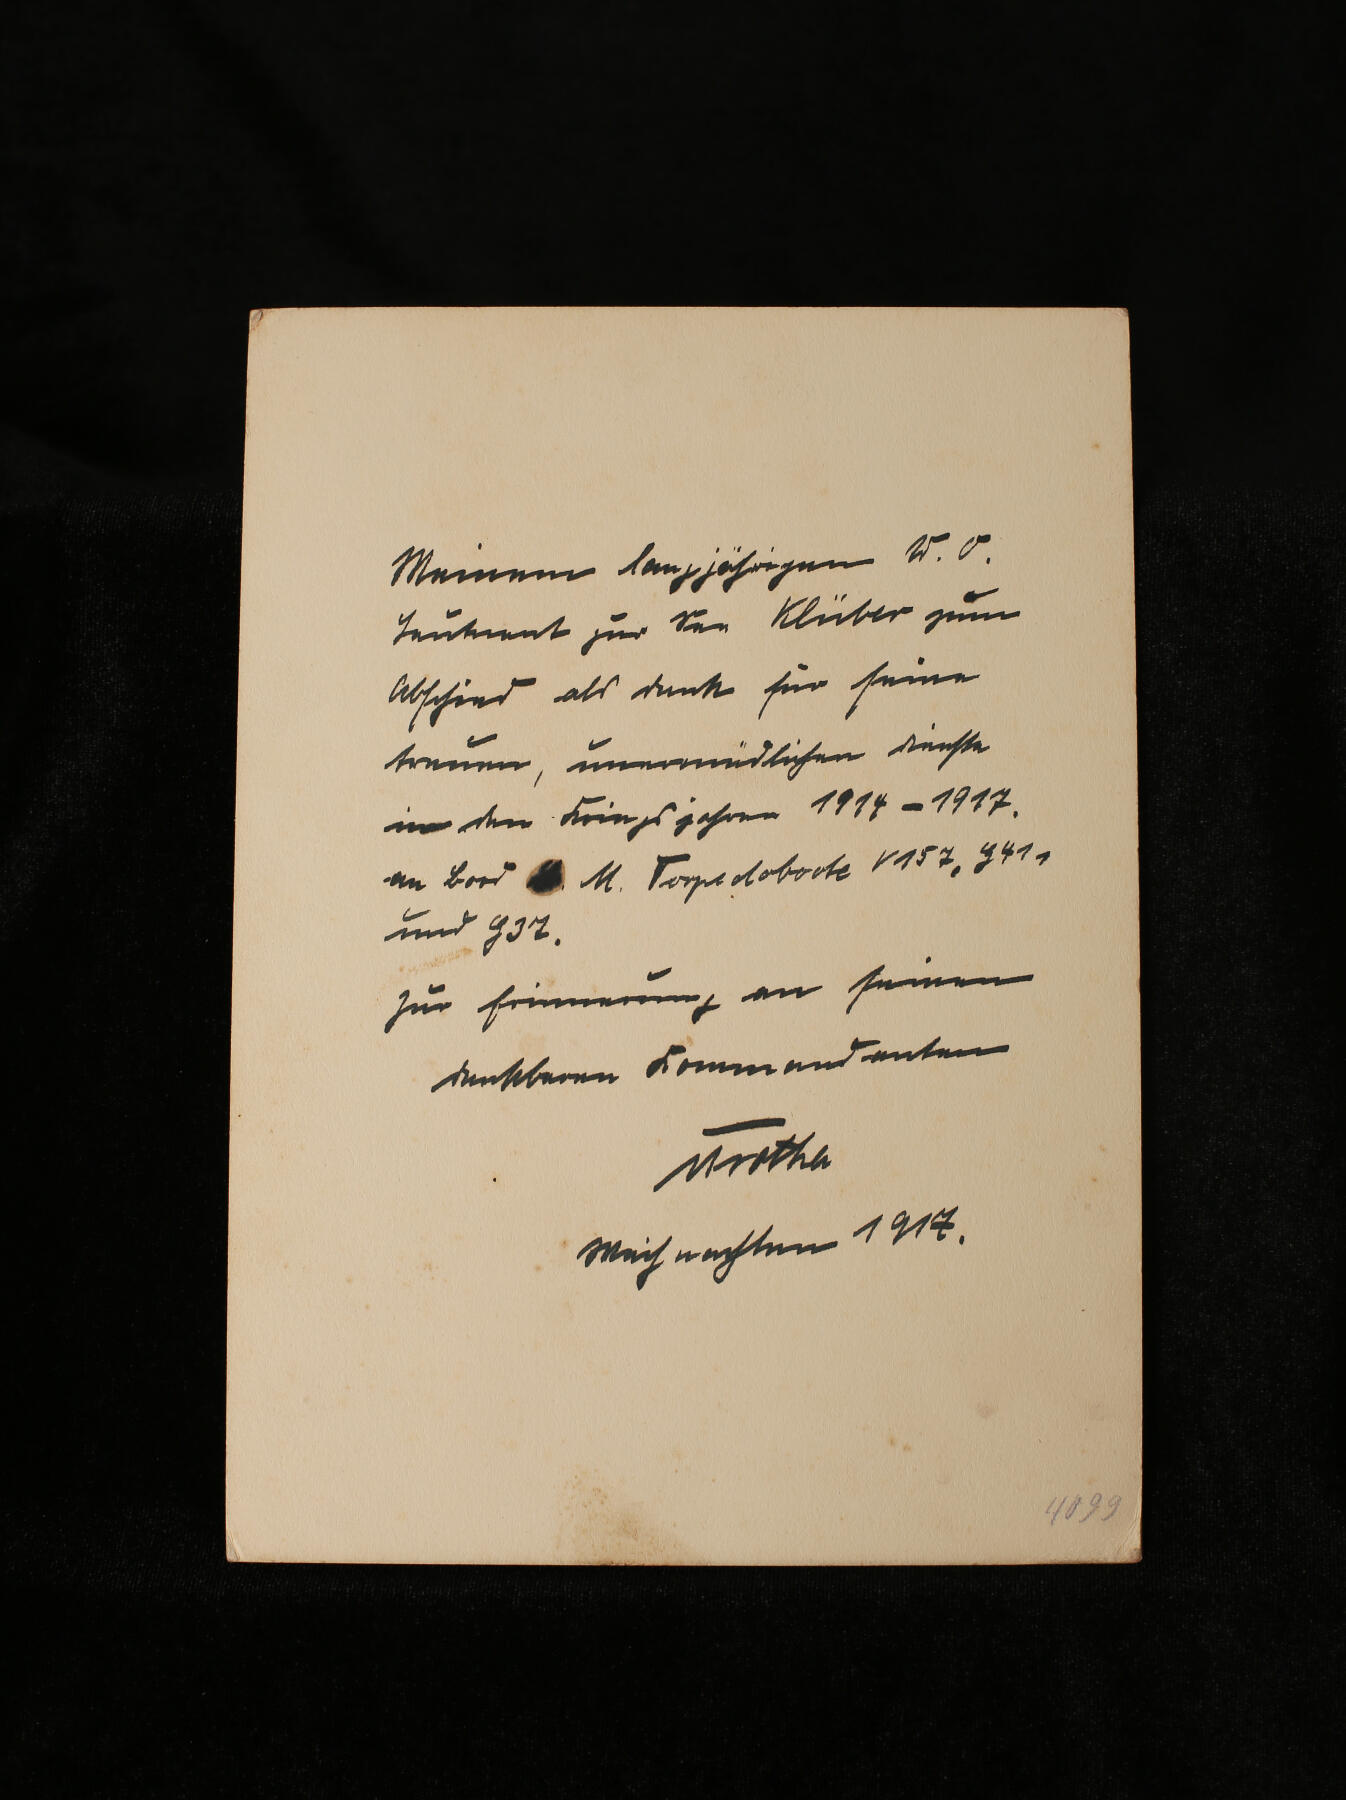 Meinem langjährigen W. O.
Leutnant zur See Klüber zum
Abschied als Dank für seine
treuen, unermüdlichen Dienste
in den Kriegsjahren 1914 – 1917.
an Bord M. Torpedoboote V157, G41,
und G37.
Zur Erinnerung an seinen
dankbaren Kommandanten
vTrotha
Weihnachten 1917.
4099